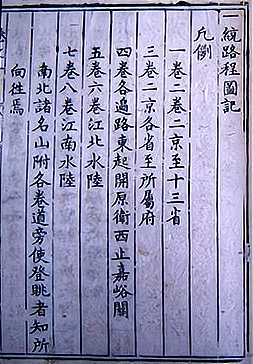 一統路程圖記
凡例
一卷二卷二京至十三省
三卷二京各省至所屬府
四卷各邊路東起開原衛西止嘉峪關
五卷六卷江北水陸
七卷八卷江南水陸
南北諸名山附各卷道旁使登眺者知所
向往焉